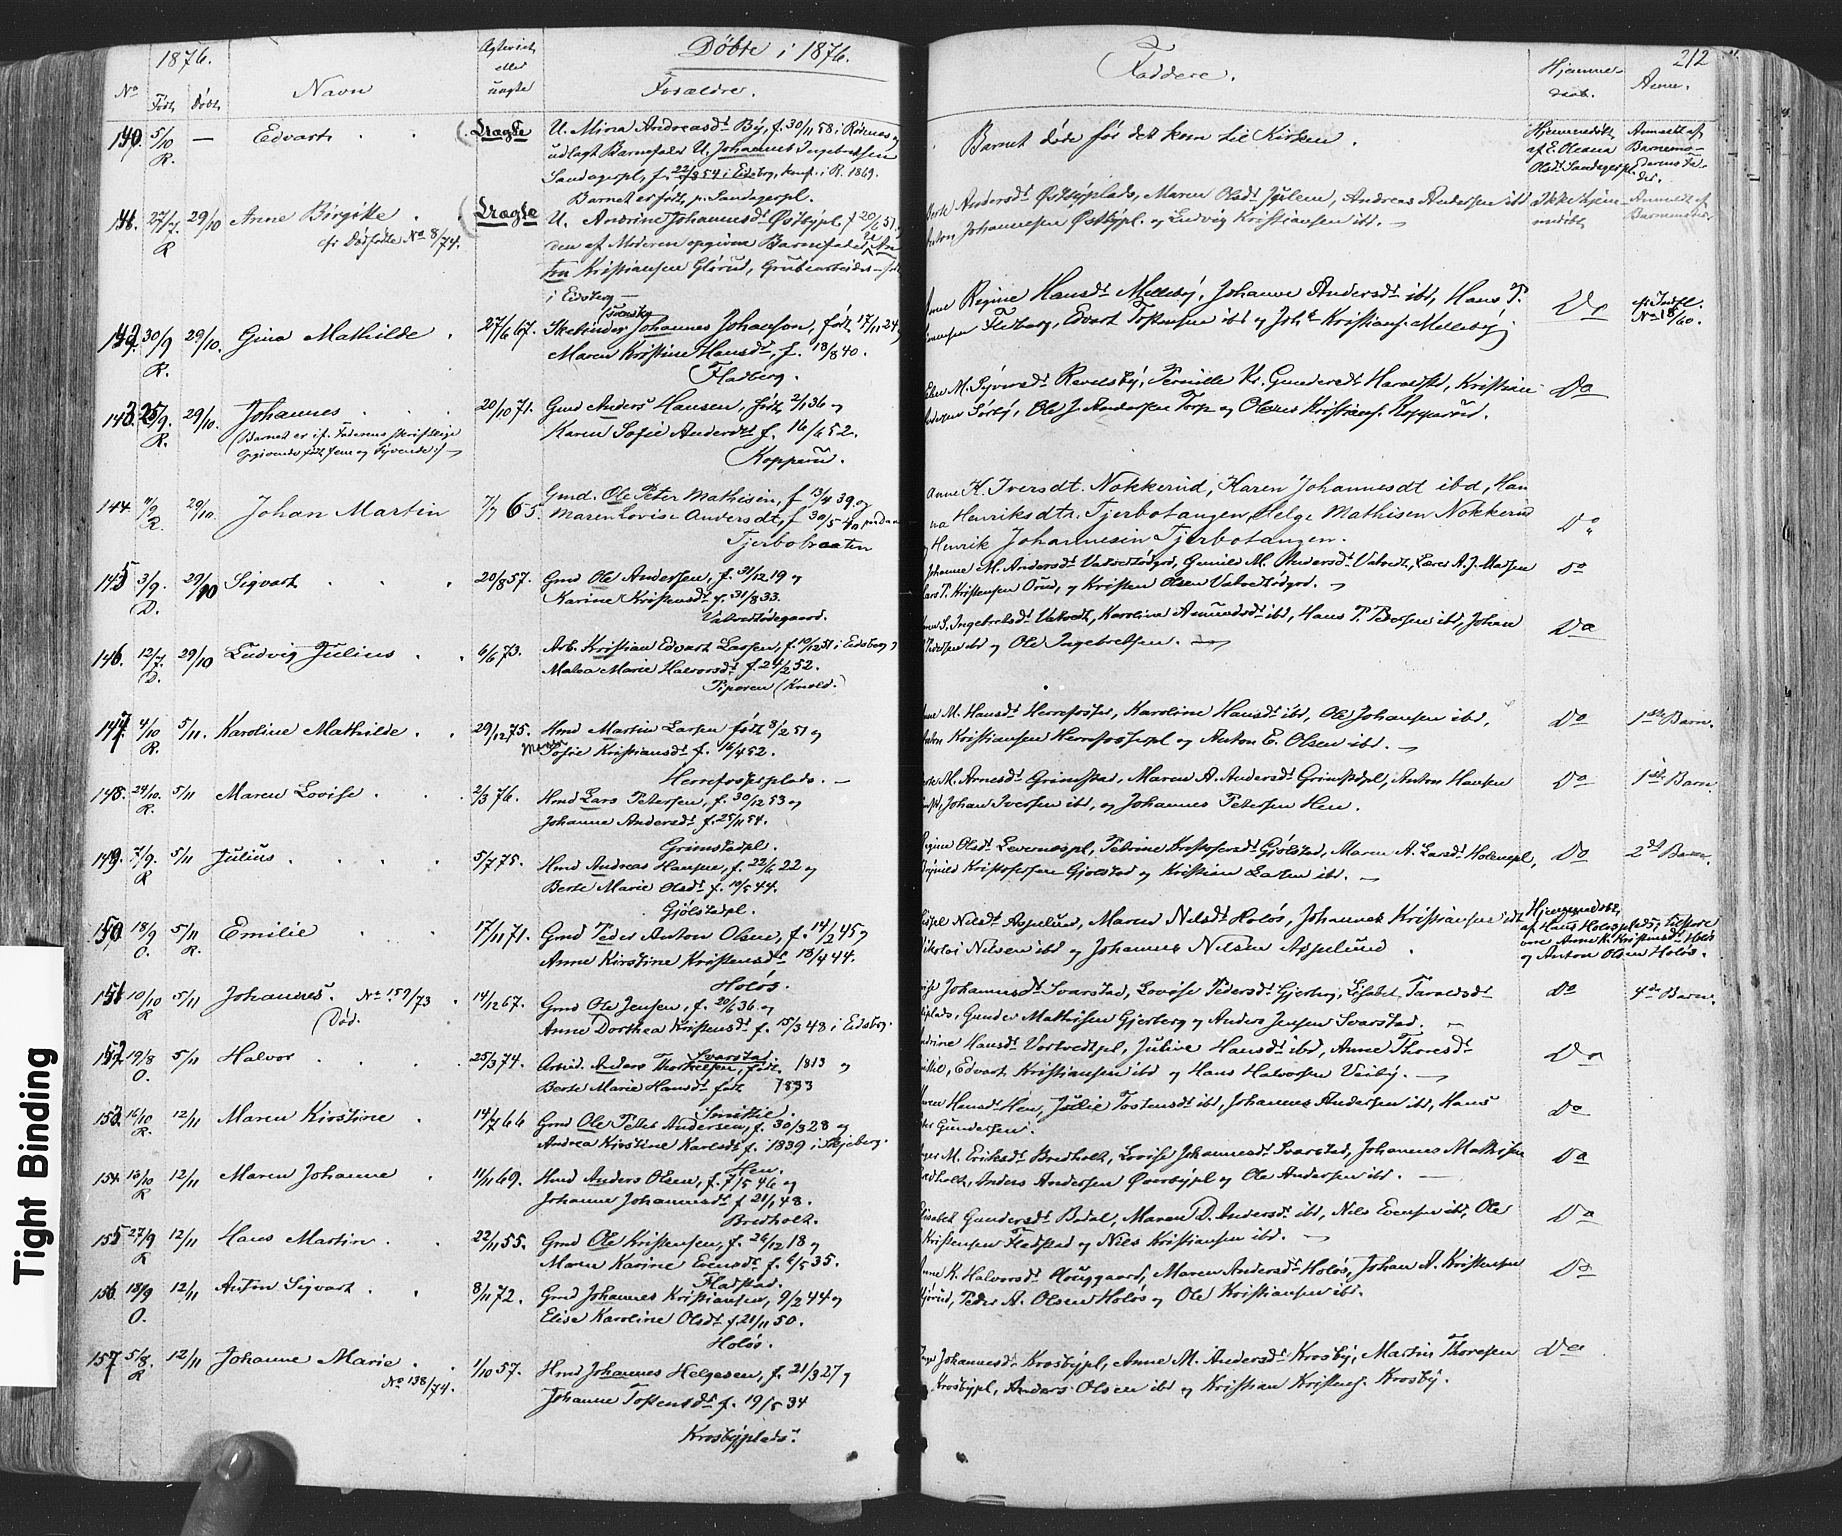 1876.
Døbte i 1876.
Faddere.
212
No Født. Døbt. Navn
eller uægte
Forældre.
Hjemme-
daab.
Anm.
140. 5/10 R. — Edvart
Uægte
U. Mina Andreasdt By, f. 30/11 58 i Rødenes og
udlagt Barnefader U. Johannes Ingebretsen
Sandagerpl, f. 22/3 54 i Eidsberg, konf. i R. 1869.
Barnet er født p. Sandagerpl.
Barnet døde før det kom til Kirken.
Hjemmedøbt
af E. Oleana
Olsdt Sandagerpl.
Anmeldt af
Barnemo-
derens Fa-
der.
141. 27/7 R 29/10 Anne Birgitte
fr Dødfødte No 8/74.
Uægte
U. Andrine Johannesdt Østbypl. f 20/6 51,
den af Moderen opgivne Barnefader
Kristiansen Glørud, Grubearbeider
i Eidsberg —
Andersdt Østbyplads, Maren Olsdt, Andreas Andersen ibd
Johannesen Østbypl. og Ludvig Kristiansen ibd. —
Ikke hjem-
medøbt
Anmeldt af
142. 30/9 R. 29/10. Gina Mathilde
27/6 67.
Johannes Johanson, født 17/11 24
Maren Kristine Hansdt, f. 18/8 40.
Fladberg.
Regine Hansdt Melleby, Johanne Andersdt ibd, Hans P.
Fladberg, Edvart Tostensen ibd og Joh. Kristians. Melleby.
Do
No 18/60.
143. 25/9. R. 29/10. Johannes
(Barnet er if. Faderens skriftlige
Opgivende født fem og Tyvende) —
20/10 71.
Gmd Anders Hansen, født 2/1 36 og
Karen Sofie Andersdt f. 16/6 52.
Kopperu.
M. Syversdt Revelsby, Pernille Kr. Gundersdt Harestad, Kristian
Sørby, Ole J. Andersen Torp og Olaves Kristians. Kopperud.
Do
144. 11/9 R. 29/10. Johan Martin
7/7 65.
Gmd. Ole Peter Mathisen, f 13/4 39 og
Maren Lovise Andersdt, f 30/5 40
Tjerbobraaten
Anne K. Iversdt. Nokkerud, Karen Johannesdt ibd, Han
na Henriksdtr. Tjerbotangen, Helge Mathisen Nokkerud
Henrik Johannesen Tjerbotangen.
Do
145 3/9. D. 29/10 Sigvart
20/8 57.
Gmd Ole Andersen, f. 31/12 19 og
Karine Kristensdt f. 31/8 33.
Vatvedtødegaard.
Johanne M. Andersdt Vatvedtødgrd, Gunild M. Andersdt Vatvedt, Lærer A. J. Madsen
Lars P. Kristensen Orud, og Kristen Olsen Vatvedtødgrd. —
Do
146. 12/7. D. 29/10 Ludvig Julius
6/6 73.
Arb. Kristian Edvart Larsen, f. 10/12 51 i Eidsberg og
Malea Marie Halvorsdt f. 24/2 52.
Piperen (Knold.)
S. Ingebretsdt Vatvedt, Karoline Amundsdt ibd, Hans P. Pedersen ibd, Johan
Pedersen ibd og Ole Ingebretsen. —
Do
147 4/10 R. 5/11. Karoline Mathilde
29/12 75.
Hmd Martin Larsen født 8/2 51 og
Maren Sofie Kristiansdt f. 16/4 52.
Herrefosseplads. —
M. Hansdt Herrefosse, Karoline Hansdt ibd, Ole Johansen ibd,
Anton Kristiansen Herrefossepl og Anton E. Olsen ibd. —
Do
1ste Barn.
148. 24/10. R. 5/11 Maren Lovise
2/3 76.
Hmd Lars Petersen, f. 30/12 53 og
Johanne Andersdt f. 25/11 54.
Grimstadpl.
M. Arnesdt Grimstad, Maren A. Andersdt Grimstadpl, Anton Hansen
Johan Iversen ibd, og Johannes Petersen Hen.
Do
1ste Barn.
149. 7/9. R 5/11 Julius
5/7 75.
Hmd Andreas Hansen, f. 22/6 22 og
Berte Marie Olsdt f. 10/5 44.
Gjølstadpl.
Olsdt Levernespl, Petrine Kristofersdt Gjølstad, Maren A. Larsdt Holenepl,
Kristofersen Gjølstad og Kristian Larsen ibd. —
Do
2det Barn
150 18/9 O. 5/11 R. Emilie
17/11 71.
Gmd Peder Anton Olsen, f. 14/2 45 og
Anne Kirstine Kristensdt 18/4 44.
Holøs.
Nilsdt Aspelund, Maren Nilsdt Holøs, Johannes Kristiansen ibd
Nikolai Nilsen ibd og Johannes Nilsen Aspelund.
Hjemmedøbt,
af Hans Holøsplads; Faddere
vare Anne K. Kristensdt Holøs
og Anton Olsen Holøs.
151 10/10 R 5/11 Johannes. No 159/73
(Død.
14/12 67.
Gmd Ole Jensen, f. 20/6 36 og
Anne Dorthea Kristensdt f. 15/3 48 i Eidsberg.
Svarstad.
Johannesdt Svarstad, Lovise Pedersdt Gjerberg, Lisabet Taraldsdt
plads, Gunder Mathisen Gjerberg og Anders Jensen Svarstad. —
Do
4de Barn.
152. 19/8 O. 5/11 Halvor
25/3 74.
Arbd. Anders Thorkelsen, født 1813 og
Berte Marie Hansdt født 1833
Smittil.
Hansdt Vortvedtpl, Juline Hansdt ibd, Anne Thoresdt
Edvart Kristiansen ibd og Hans Halvorsen Veiby. —
Do
153. 16/10 R. 12/11 Maren Kirstine
14/7 66
Gmd Ole Peter Andersen, f. 30/3 28 og
Andrea Kirstine Karlsdt f. 1839 i Skjeberg.
Hen.
Hansdt Hen, Julie Tostensdt ibd, Johannes Andersen ibd, Hans
Gundersen.
Do
154. 13/10 R 12/11 Maren Johanne
11/11 69.
Hmd Anders Olsen, f. 7/5 46 og
Johanne Johannesdt f 21/1 48.
Bredholt.
M. Eriksdt Bredholt, Lovise Johannesdt Svarstad, Johannes Mathisen
Bredholt, Anders Andersen Øverbypl og Ole Andersen ibd. —
Do
155 27/9 R 12/11 Hans Martin
22/11 55.
Gmd Ole Kristensen, f. 26/12 18 og
Maren Karine Evensdt f. 6/5 35.
Fladstad.
Elisabet Gundersdt Bødal, Maren D. Andersdt ibd, Nils Evensen ibd, Ole
Kristensen Fladstad og Nils Kristiansen ibd. —
Do
156. 18/9 O. 12/11 Anton Sigvart
8/11 72.
Gmd Johannes Kristiansen, 9/2 44 og
Elise Karoline Olsdt f. 21/11 50.
Holøs.
Anne K. Halvorsdt Houggaard, Maren Andersdt Holøs, Johan A. Kristensen
Peder A. Olsen Holøs og Ole Kristiansen ibd.
Do
157 5/8. R 12/11 Johanne Marie
No 138/74.
1/10 57.
Hmd Johannes Helgesen, f. 21/3 27 og
Johanne Tostensdt f. 19/5 34
Krosbyplads.
Johannesdt Krosbypl, Anne M. Andersdt Krosby, Martin Thoresen
Krosbypl, Anders Olsen ibd og Kristian Kristens. Krosby.
Do
Tight Binding